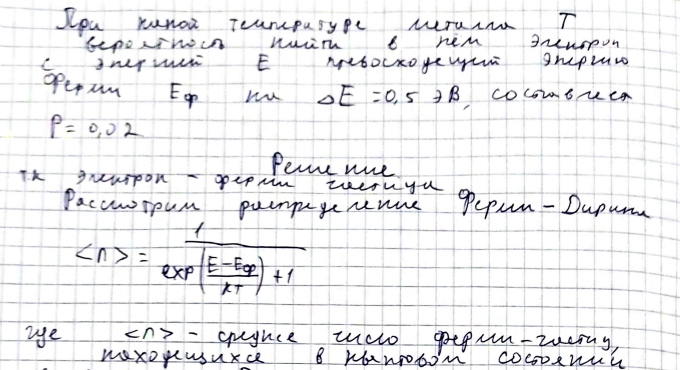 При какой температуре металла T
вероятность найти в нём электрон
с энергией E превосходящей энергию
Ферми Eф на ΔE = 0,5 эВ, составляет
P = 0,02
Решение
тк электрон - ферми частица
Рассмотрим распределение Ферми - Дирака
<n> = 1 / (exp((E - Eф) / kT) + 1)
где <n> - среднее число ферми-частиц,
находящихся в квантовом состоянии